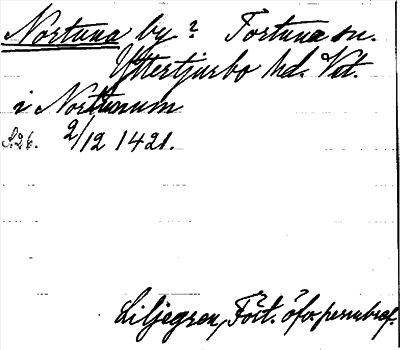 Nortuna by? Fortuna sn.
Yttertjurbo hd. Vet.
i Nortunum
S. 26. 2/12 1421.
Liljegren, Fört. öfv. permbref.